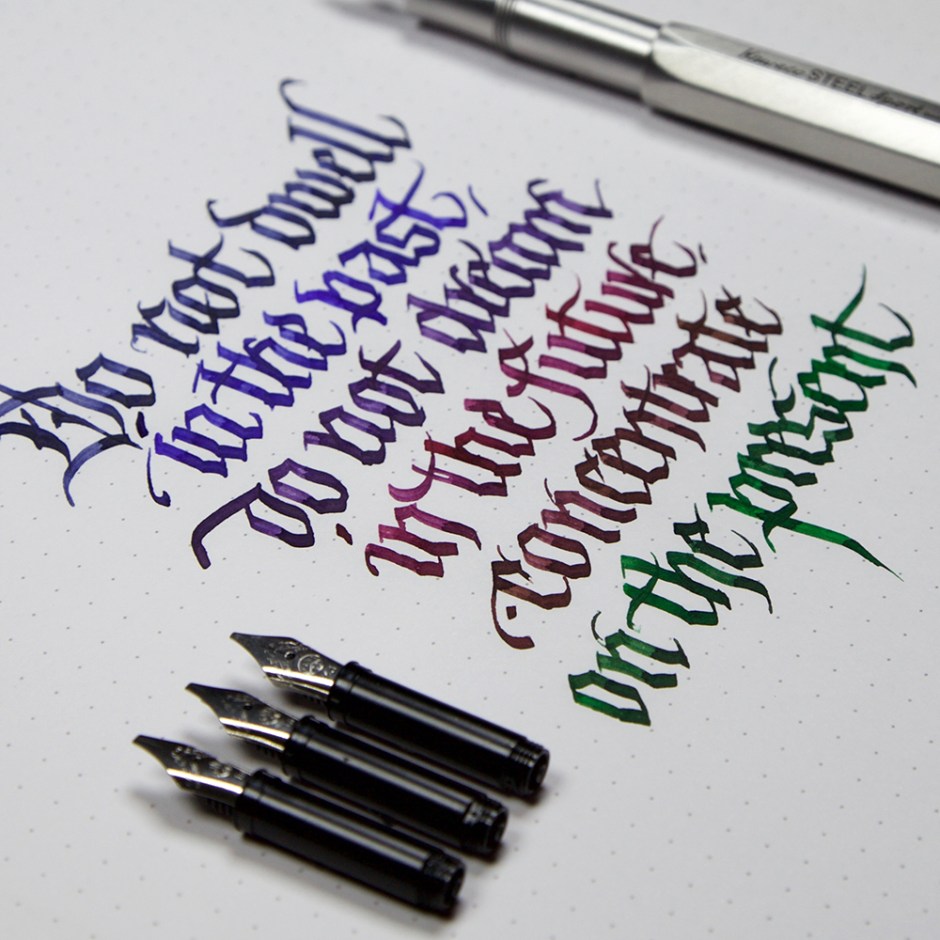 Do not dwell
in the past,
Do not dream
in the future.
Concentrate
on the present
Kaweco STEEL Sport